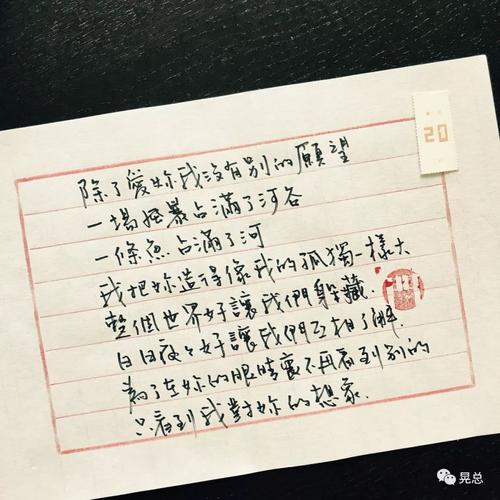 除了愛妳我沒有別的願望
一場風暴占滿了河谷
一條魚占滿了河
我把妳造得像我的孤獨一樣大
整個世界好讓我們躲藏.
日日夜々好讓我們互相了解.
為了在妳的眼睛裏不再看到別的
只看到我對妳的想象.
20
晃总